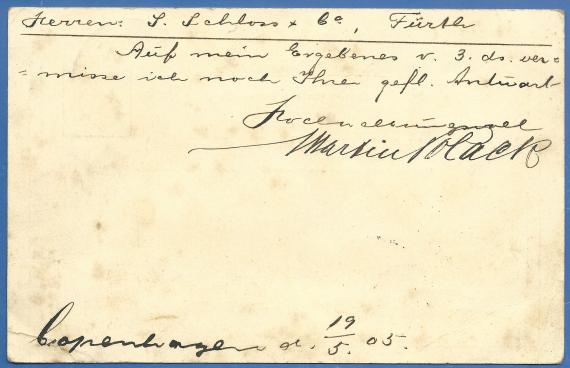 Herren: S. Schloss & Co, Fürth
Auf mein Ergebenes v. 3. ds. ver=
=misse ich noch Ihre gefl. Antwort
Hochachtungsvoll
Martin Polack
Copenhagen d. 19/5. 05.